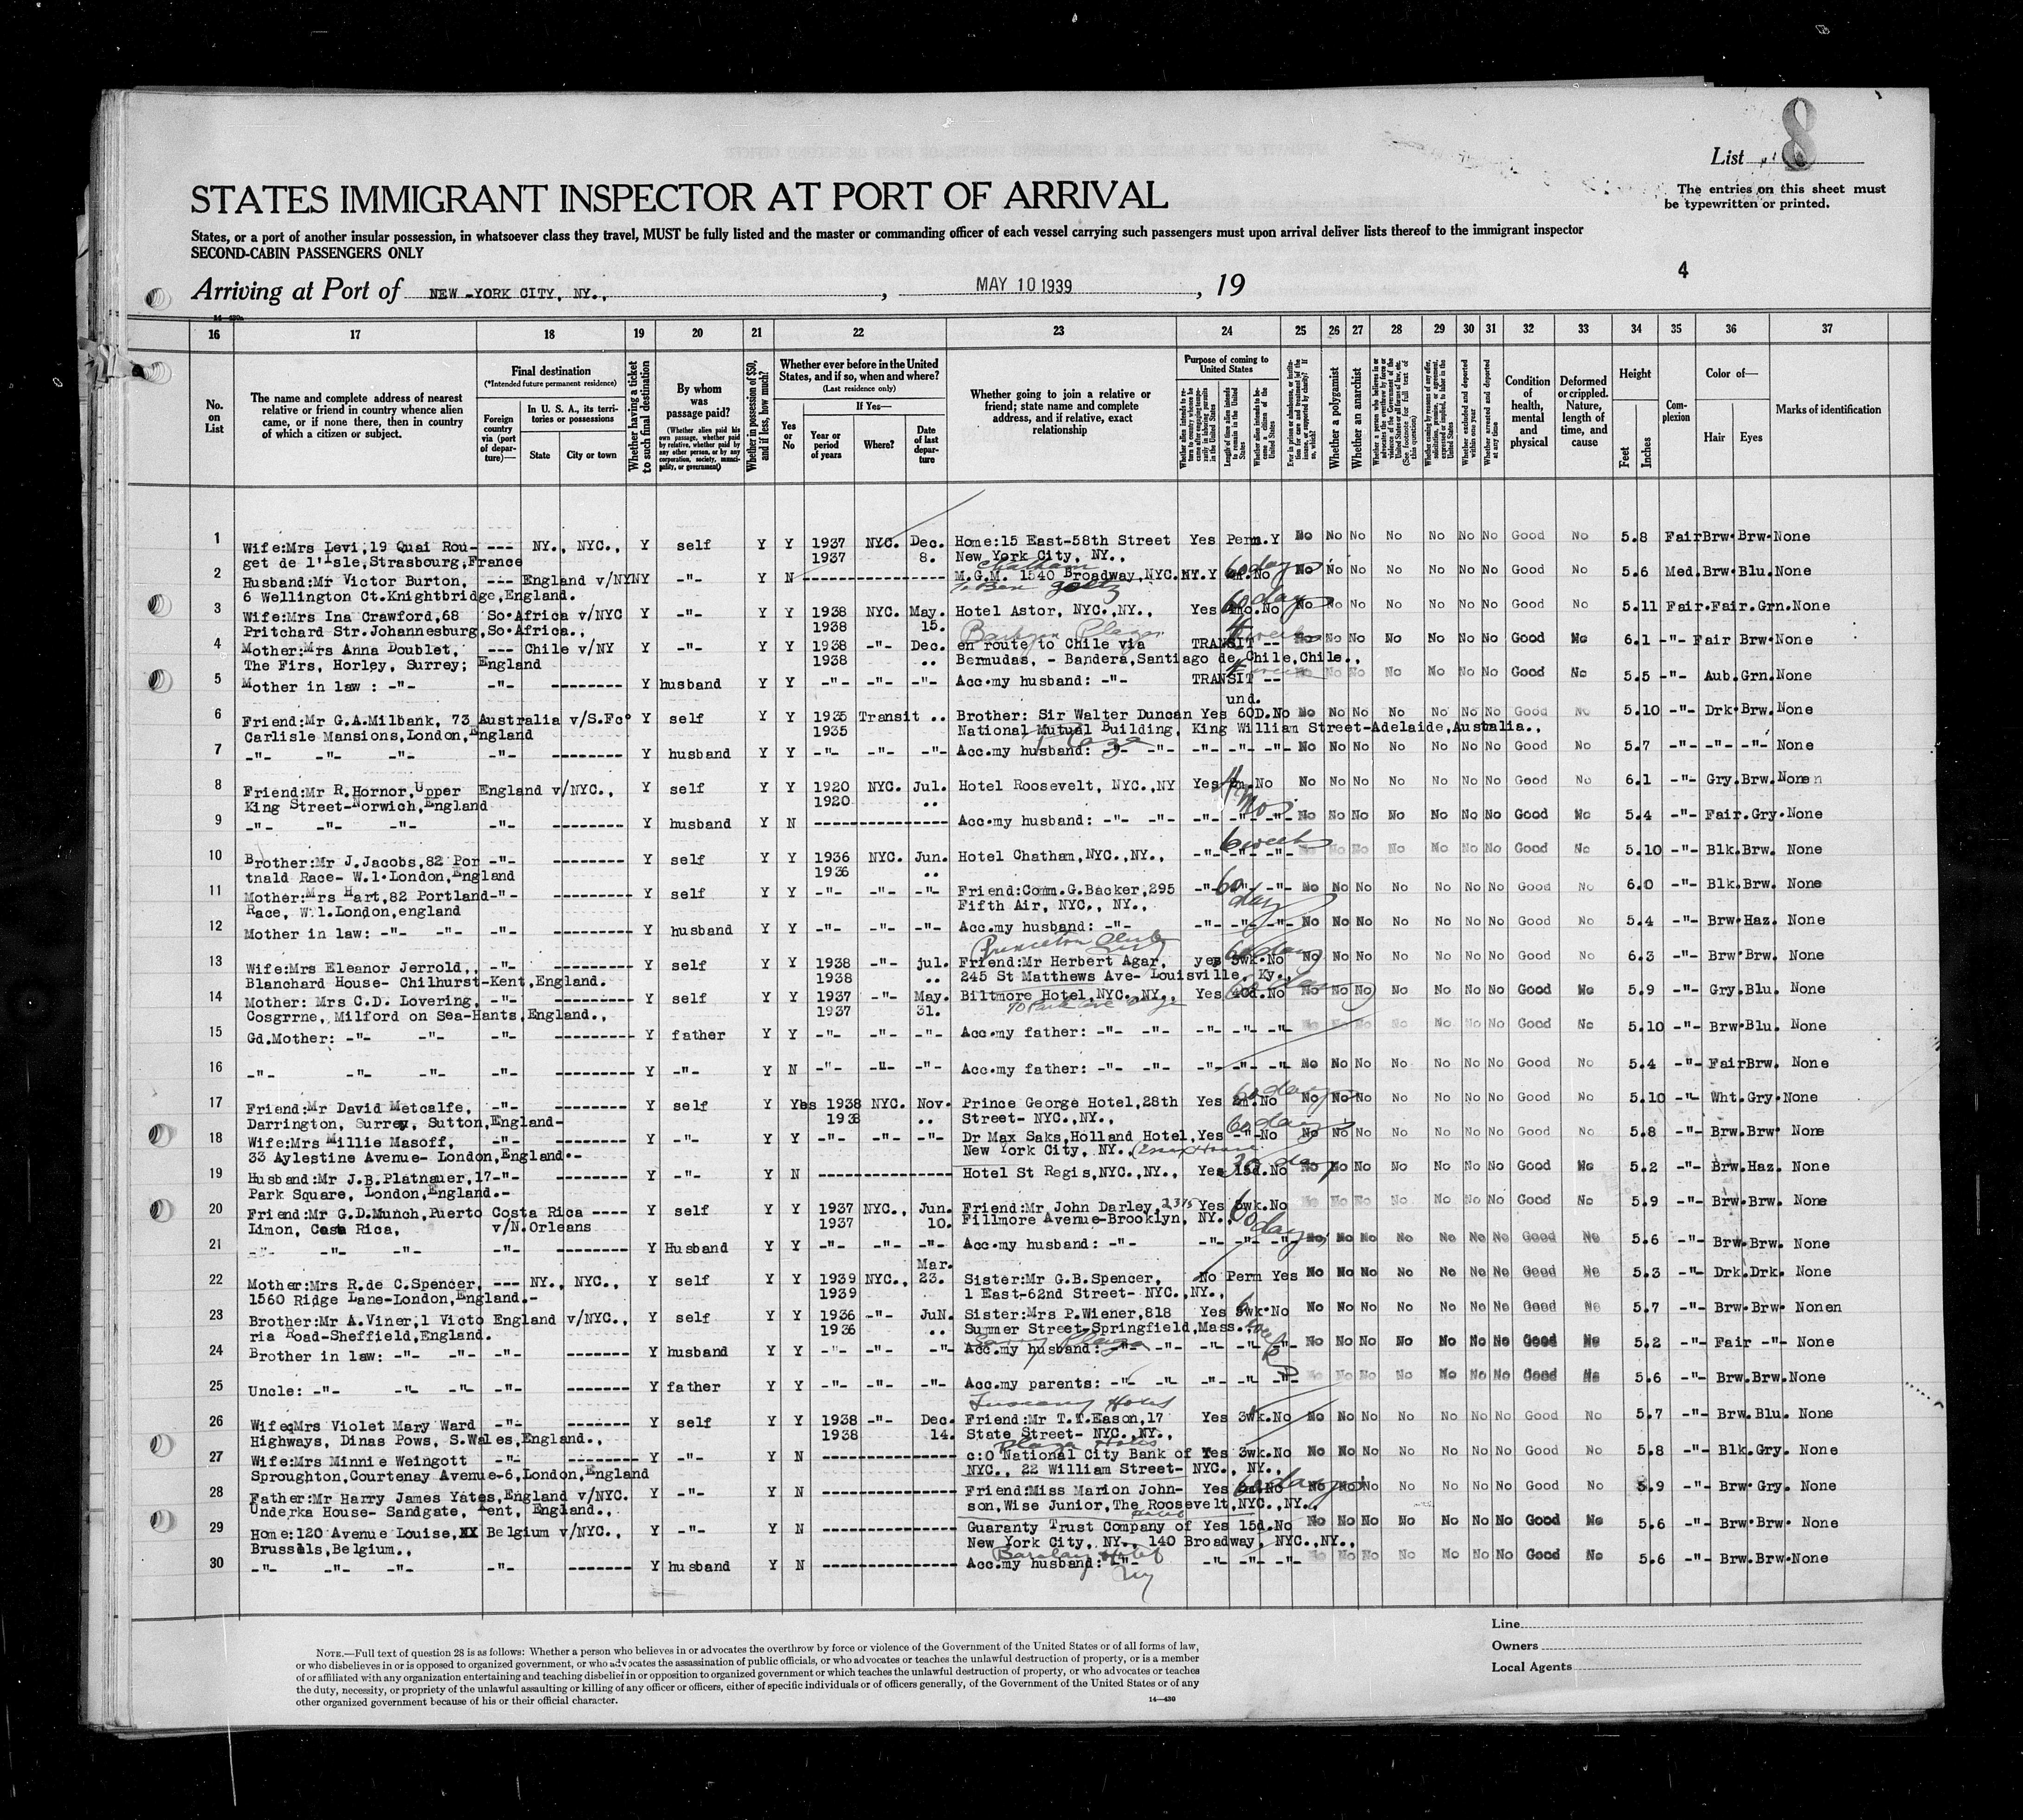 8
List
The entries on this sheet must
be typewritten or printed.
STATES IMMIGRANT INSPECTOR AT PORT OF ARRIVAL
States, or a port of another insular possession, in whatsoever class they travel, MUST be fully listed and the master or commanding officer of each vessel carrying such passengers must upon arrival deliver lists thereof to the immigrant inspector
SECOND-CABIN PASSENGERS ONLY
4
Arriving at Port of NEW -YORK CITY, NY., , MAY 10 1939 , 19
14-430a
16 17 18 19 20 21 22 23 24 25 26 27 28 29 30 31 32 33 34 35 36 37
No. on List
The name and complete address of nearest relative or friend in country whence alien came, or if none there, then in country of which a citizen or subject.
Final destination
(*Intended future permanent residence)
Foreign country via (port of departure)—
In U. S. A., its territories or possessions
State
City or town
Whether having a ticket to such final destination
By whom was passage paid?
(Whether alien paid his own passage, whether paid by relative, whether paid by any other person, or by any corporation, society, municipality, or government)
Whether in possession of $50, and if less, how much?
Whether ever before in the United States, and if so, when and where?
(Last residence only)
Yes or No
If Yes—
Year or period of years
Where?
Date of last departure
Whether going to join a relative or friend; state name and complete address, and if relative, exact relationship
Purpose of coming to United States
Whether a polygamist
Whether an anarchist
Condition of health, mental and physical
Deformed or crippled. Nature, length of time, and cause
Height
Feet
Inches
Complexion
Color of—
Hair
Eyes
Marks of identification
1 Wife:Mrs Levi,19 Quai Rou- --- NY., NYC., Y self Y Y 1937 NYC. Dec. Home:15 East-58th Street Yes Perm.Y No No No No No No No Good No 5.8 Fair Brw. Brw. None
get de l'Isle,Strasbourg,France 1937 8. New York City, NY.,
Chatham
2 Husband:Mr Victor Burton, --- England v/NY NY Y -"- Y N ---------------- M.G.M. 1540 Broadway,NYC.NY.Y No 60 days No No No No No No No Good No 5.6 Med. Brw. Blu. None
6 Wellington Ct.Knightbridge,England.
3 Wife:Mrs Ina Crawford,68 So.Africa v/NYC Y -"- Y Y 1938 NYC. May. Hotel Astor, NYC.,NY., Yes No 60 days No No No No No No No Good No 5.11 Fair. Fair. Grn. None
Pritchard Str.Johannesburg,So.Africa., 1938 15.
4 Mother:Mrs Anna Doublet, --- Chile v/NY Y -"- Y Y 1938 -"- Dec. en route to Chile via TRANSIT -- No No No No No No No Good No 6.1 -"- Fair Brw. None
The Firs, Horley, Surrey; England 1938 .. Bermudas, - Bandera,Santiago de Chile,Chile.,
5 Mother in law : -"- -"- -------- Y husband Y Y -"- -"- -"- Acc.my husband: -"- TRANSIT -- No No No No No No No Good No 5.5 -"- Aub. Grn. None
und.
6 Friend:Mr G.A.Milbank, 73 Australia v/S.Fco Y self Y Y 1935 Transit .. Brother: Sir Walter Duncan Yes 60D.No No No No No No No No Good No 5.10 -"- Drk. Brw. None
Carlisle Mansions,London,England 1935 National Mutual Building, King William Street-Adelaide,Australia.,
7 -"- -"- -"- -"- -------- Y husband Y Y -"- -"- -"- Acc.my husband: -"- -"- -"- -"- -"- No No No No No No No Good No 5.7 -"- -"- -"- None
8 Friend:Mr R.Hornor,Upper England v/NYC., Y self Y Y 1920 NYC. Jul. Hotel Roosevelt, NYC.,NY Yes No No No No No No No No Good No 6.1 -"- Gry. Brw. None
King Street-Norwich,England 1920 ..
9 -"- -"- -"- -"- -------- Y husband Y N ---------------- Acc.my husband: -"- -"- -"- -"- -"- No No No No No No No Good No 5.4 -"- Fair. Gry. None
10 Brother:Mr J.Jacobs,82 Por -"- -------- Y self Y Y 1936 NYC. Jun. Hotel Chatham,NYC.,NY., -"- -"- -"- 6 weeks No No No No No No No Good No 5.10 -"- Blk. Brw. None
tnald Race- W.1.London,England 1936 ..
11 Mother:Mrs Hart,82 Portland-"- -------- Y self Y Y -"- -"- -"- Friend:Comm.G.Backer,295 -"- -"- -"- 60 days No No No No No No No Good No 6.0 -"- Blk. Brw. None
Race, W.1.London,england Fifth Air, NYC., NY.,
12 Mother in law: -"- -"- -"- -------- Y husband Y Y -"- -"- -"- Acc.my husband: -"- -"- -"- -"- No No No No No No No Good No 5.4 -"- Brw. Haz. None
Princeton Club
13 Wife:Mrs Eleanor Jerrold,, -"- -------- Y self Y Y 1938 -"- jul. Friend:Mr Herbert Agar, yes 3wk.No 60 days No No No No No No No Good No 6.3 -"- Brw. Brw. None
Blanchard House- Chilhurst-Kent,England. 1938 .. 245 St Matthews Ave- Louisville, Ky.,
14 Mother: Mrs C.D. Lovering, -"- -------- Y self Y Y 1937 -"- May. Biltmore Hotel,NYC.,NY., Yes 40d.No No No No No No No No Good No 5.9 -"- Gry. Blu. None
Cosgrrne, Milford on Sea-Hants,England., 1937 31.
15 Gd.Mother: -"- -"- -"- -------- Y father Y Y -"- -"- -"- Acc.my father: -"- -"- -"- -"- -"- No No No No No No No Good No 5.10 -"- Brw. Blu. None
16 -"- -"- -"- -"- -------- Y -"- Y N -"- -"- -"- Acc.my father: -"- -"- -"- -"- -"- No No No No No No No Good No 5.4 -"- Fair Brw. None
17 Friend:Mr David Metcalfe, -"- -------- Y self Y Yes 1938 NYC. Nov. Prince George Hotel,28th Yes No 60 days No No No No No No No Good No 5.10 -"- Wht. Gry. None
Darrington, Surrey, Sutton,England- 1938 .. Street- NYC.,NY.,
18 Wife:Mrs Millie Masoff, -"- -------- Y -"- Y Y -"- -"- -"- Dr Max Saks,Holland Hotel,Yes -"-No 60 days No No No No No No No Good No 5.8 -"- Brw. Brw. None
33 Aylestine Avenue- London,England.- New York City, NY.,
19 Husband:Mr J.B.Platnauer,17-"- -------- Y -"- Y N ---------------- Hotel St Regis,NYC.,NY., Yes 15d.No 30 days No No No No No No No Good No 5.2 -"- Brw. Haz. None
Park Square, London,England.-
20 Friend:Mr G.D.Munch,Puerto Costa Rica ---- Y self Y Y 1937 NYC., Jun. Friend:Mr John Darley, 2375 Yes 3wk.No 60 days No No No No No No No Good No 5.9 -"- Brw. Brw. None
Limon, Costa Rica, v/N.Orleans 1937 10. Fillmore Avenue-Brooklyn, NY.,
21 -"- -"- -"- -"- -------- Y Husband Y Y -"- -"- -"- Acc.my husband: -"- -"- -"- -"- No No No No No No No Good No 5.6 -"- Brw. Brw. None
Mar.
22 Mother:Mrs R.de C.Spencer, --- NY., NYC., Y self Y Y 1939 NYC., 23. Sister:Mr G.B.Spencer, No Perm Yes No No No No No No No Good No 5.3 -"- Drk. Drk. None
1560 Ridge Lane-London,England.- 1939 1 East-62nd Street- NYC.,NY.,
23 Brother:Mr A.Viner,1 Victo England v/NYC., Y self Y Y 1936 -"- JuN. Sister:Mrs P.Wiener,818 Yes 3wk.No No No No No No No No Good No 5.7 -"- Brw. Brw. Nonen
ria Road-Sheffield,England. 1936 .. Sumner Street-Springfield,Mass.,
24 Brother in law: -"- -"- -"- -------- Y husband Y Y -"- -"- -"- Acc.my husband: -"- -"- -"- -"- -"- No No No No No No No Good No 5.2 -"- Fair -"- None
25 Uncle: -"- -"- -"- -"- -------- Y father Y Y -"- -"- -"- Acc.my parents: -"- -"- -"- -"- -"- No No No No No No No Good No 5.6 -"- Brw. Brw. None
Tuscany Hotel
26 Wife:Mrs Violet Mary Ward -"- -------- Y self Y Y 1938 -"- Dec. Friend:Mr T.T.Eason,17 Yes 3wk.No No No No No No No No Good No 5.7 -"- Brw. Blu. None
Highways, Dinas Pows, S.Wales,England., 1938 14. State Street- NYC.,NY.,
Plaza Hotel
27 Wife:Mrs Minnie Weingott -"- -------- Y -"- Y N ---------------- c:O National City Bank of Yes 3wk.No No No No No No No No Good No 5.8 -"- Blk. Gry. None
Sproughton,Courtenay Avenue-6,London,England NYC., 22 William Street- NYC., NY.,
28 Father:Mr Harry James Yates,England v/NYC. Y -"- Y N ---------------- Friend:Miss Marion John- Yes No 60 days No No No No No No No Good No 5.9 -"- Brw. Gry. None
Underka House- Sandgate, Kent, England., son,Wise Junior,The Roosevelt,NYC.,NY.,
Hotel
29 Home:120 Avenue Louise,XX Belgium v/NYC., Y -"- Y N ---------------- Guaranty Trust Company of Yes 15d.No No No No No No No No Good No 5.6 -"- Brw. Brw. None
Brussels,Belgium., New York City, NY., 140 Broadway, NYC.,NY.,
Barclay Hotel
30 -"- -"- -"- -"- -------- Y husband Y N ---------------- Acc.my husband: -"- -"- -"- -"- No No No No No No No Good No 5.6 -"- Brw. Brw. None
NY
Line
Owners
Local Agents
NOTE.—Full text of question 28 is as follows: Whether a person who believes in or advocates the overthrow by force or violence of the Government of the United States or of all forms of law,
or who disbelieves in or is opposed to organized government, or who advocates the assassination of public officials, or who advocates or teaches the unlawful destruction of property, or is a member
of or affiliated with any organization entertaining and teaching disbelief in or opposition to organized government or which teaches the unlawful destruction of property, or who advocates or teaches
the duty, necessity, or propriety of the unlawful assaulting or killing of any officer or officers, either of specific individuals or of officers generally, of the Government of the United States or of any
other organized government because of his or their official character.
14—430